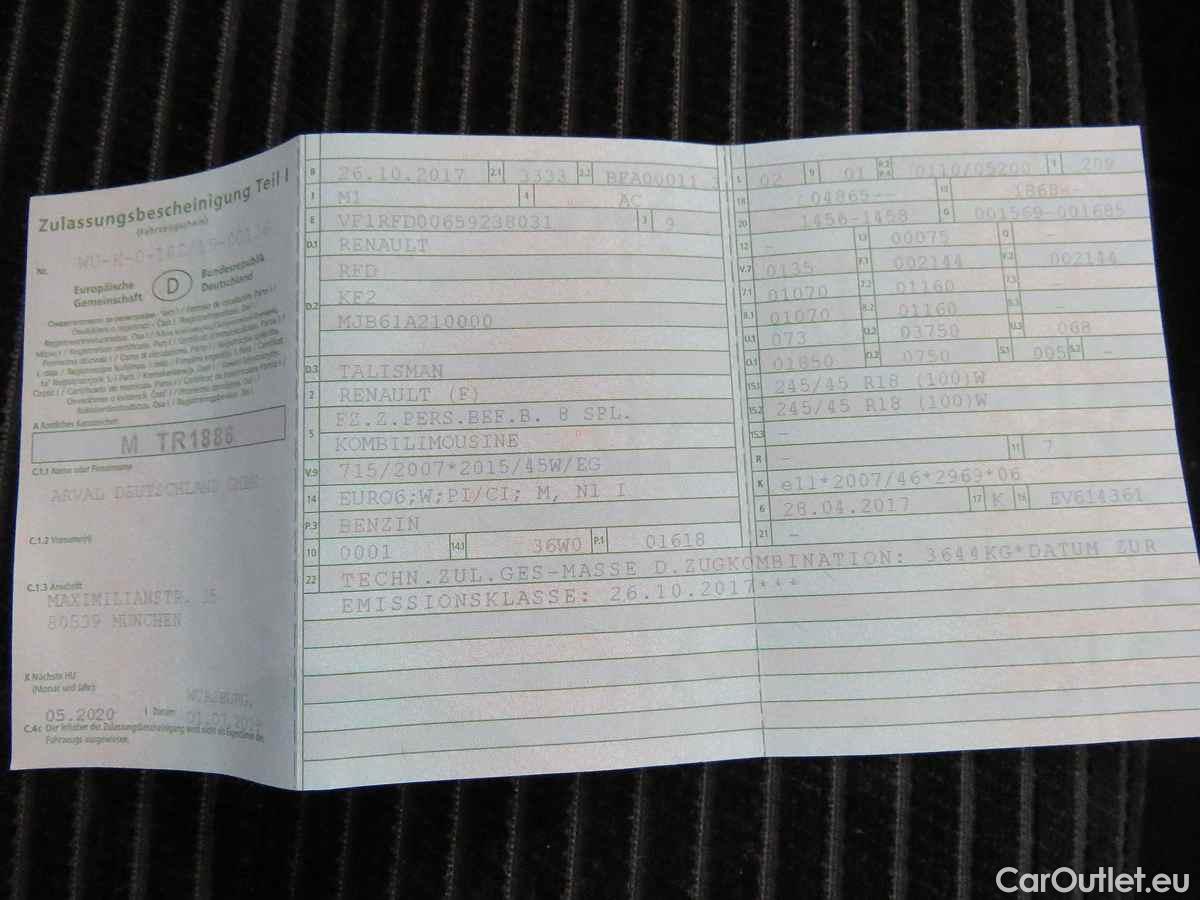 Zulassungsbescheinigung Teil I
(Fahrzeugschein)
Nr.
Europäische Gemeinschaft
D
Bundesrepublik Deutschland
A Amtliches Kennzeichen
M TR1886
C.1.1 Name oder Firmenname
ARVAL DEUTSCHLAND GMBH
C.1.2 Vorname(n)
C.1.3 Anschrift
MAXIMILIANSTR. 35
80539 MÜNCHEN
X Nächste HU
(Monat und Jahr)
05.2020
I Datum
WÜRZBURG,
C.4c Der Inhaber der Zulassungsbescheinigung wird nicht als Eigentümer des
Fahrzeugs ausgewiesen.
B 26.10.2017 2.1 3333 2.2 BFA00011
J M1 4 AC
E VF1RFD00659238031 3 9
D.1 RENAULT
RFD
D.2 KF2
MJB61A210000
D.3 TALISMAN
2 RENAULT (F)
5 FZ.Z.PERS.BEF.B. 8 SPL.
KOMBILIMOUSINE
V.9 715/2007*2015/45W/EG
14 EURO6;W;PI/CI; M, N1 I
P.3 BENZIN
10 0001 14.1 36W0 P.1 01618
22 TECHN.ZUL.GES-MASSE D.ZUGKOMBINATION: 3644KG*DATUM ZUR
EMISSIONSKLASSE: 26.10.2017***
L 02 9 01 P.2 P.4 0110/05200 T 209
18 04865-- 19 1868--
20 1456-1458 G 001569-001685
12 - 13 00075 Q -
V.7 0135 F.1 002144 F.2 002144
7.1 01070 7.2 01160 7.3 -
8.1 01070 8.2 01160 8.3 -
U.1 073 U.2 03750 U.3 068
O.1 01850 O.2 0750 S.1 005 S.2 -
15.1 245/45 R18 (100)W
15.2 245/45 R18 (100)W
15.3 -
R - 11 7
K e11*2007/46*2969*06
6 28.04.2017 17 K 16 EV614361
21 -
CarOutlet.eu